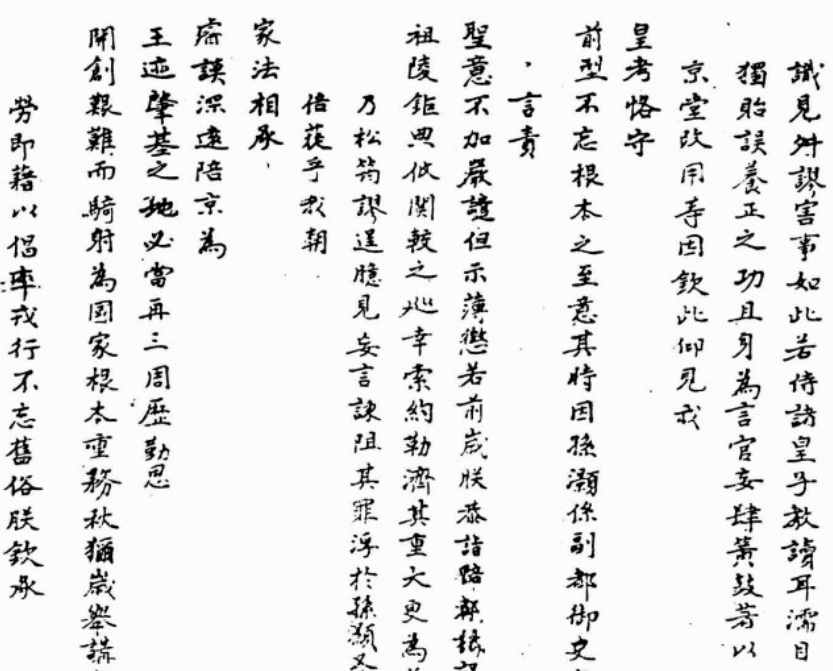 識見舛謬害事如此若侍諸皇子教讀耳濡目
獨貽誤養正之功且身為言官妄肆簧鼓若以
京堂改用寺因欽此仰見我
皇考恪守
前型不忘根本之至意其時因孫灝係副都御史
言責
聖意不加嚴譴但示薄懲若前歲朕恭詣陪都
祖陵鉅典低關較之巡幸索約勒濟其重大更為
乃松筠謬逞臆見妄言諫阻其罪浮於孫灝
倍蓰乎我朝
家法相承
謨深遠陪京為
王迹肇基之地必當再三周歷勤思
開創艱難而騎射為國家根本重務秋獮歲舉講
勞即藉以倡率戎行不忘舊俗朕欽承